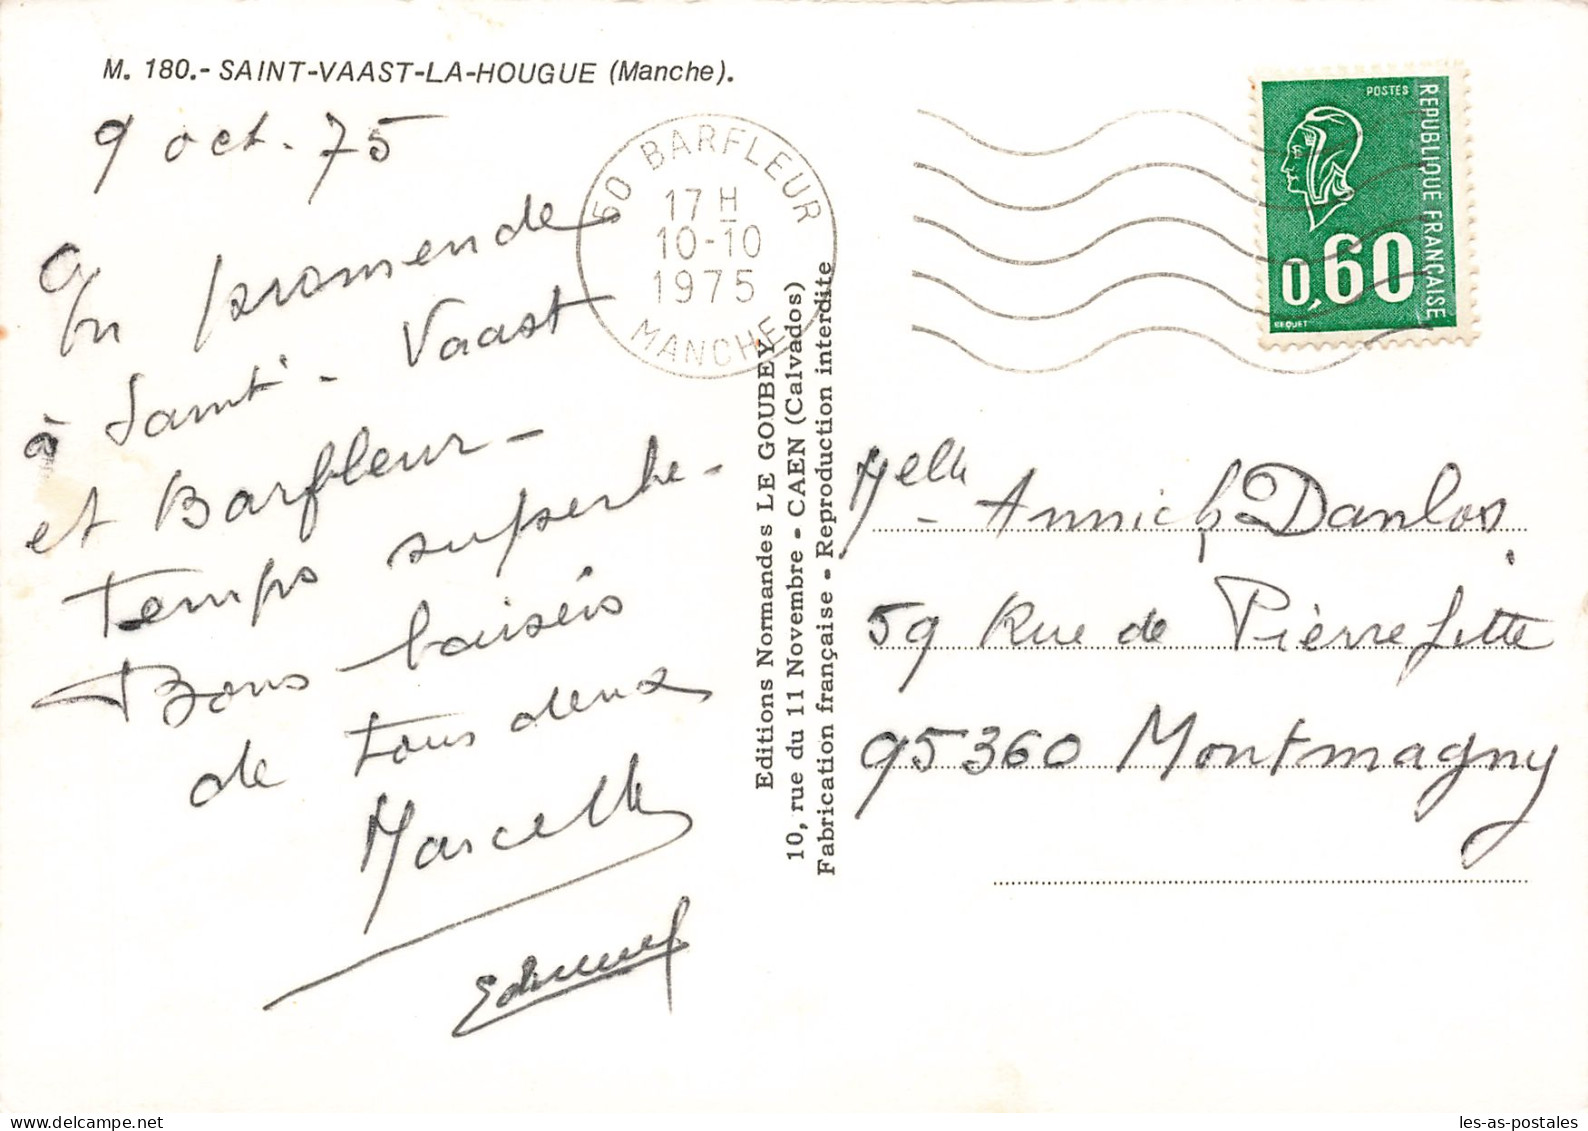 M. 180.- SAINT-VAAST-LA-HOUGUE (Manche).
9 oct. 75
En promende
à Saint-Vaast
et Barfleur -
Temps superbe -
Bons baisers
de tous deux
Marcelle
Edmond
50 BARFLEUR
17 H
10-10
1975
MANCHE
Editions Normandes LE GOUBEY
10, rue du 11 Novembre - CAEN (Calvados)
Fabrication française - Reproduction interdite
POSTES
REPUBLIQUE FRANÇAISE
0,60
BEQUET
Melle Annick Danlos
59 Rue de Pierrefitte
95360 Montmagny
les-as-postales